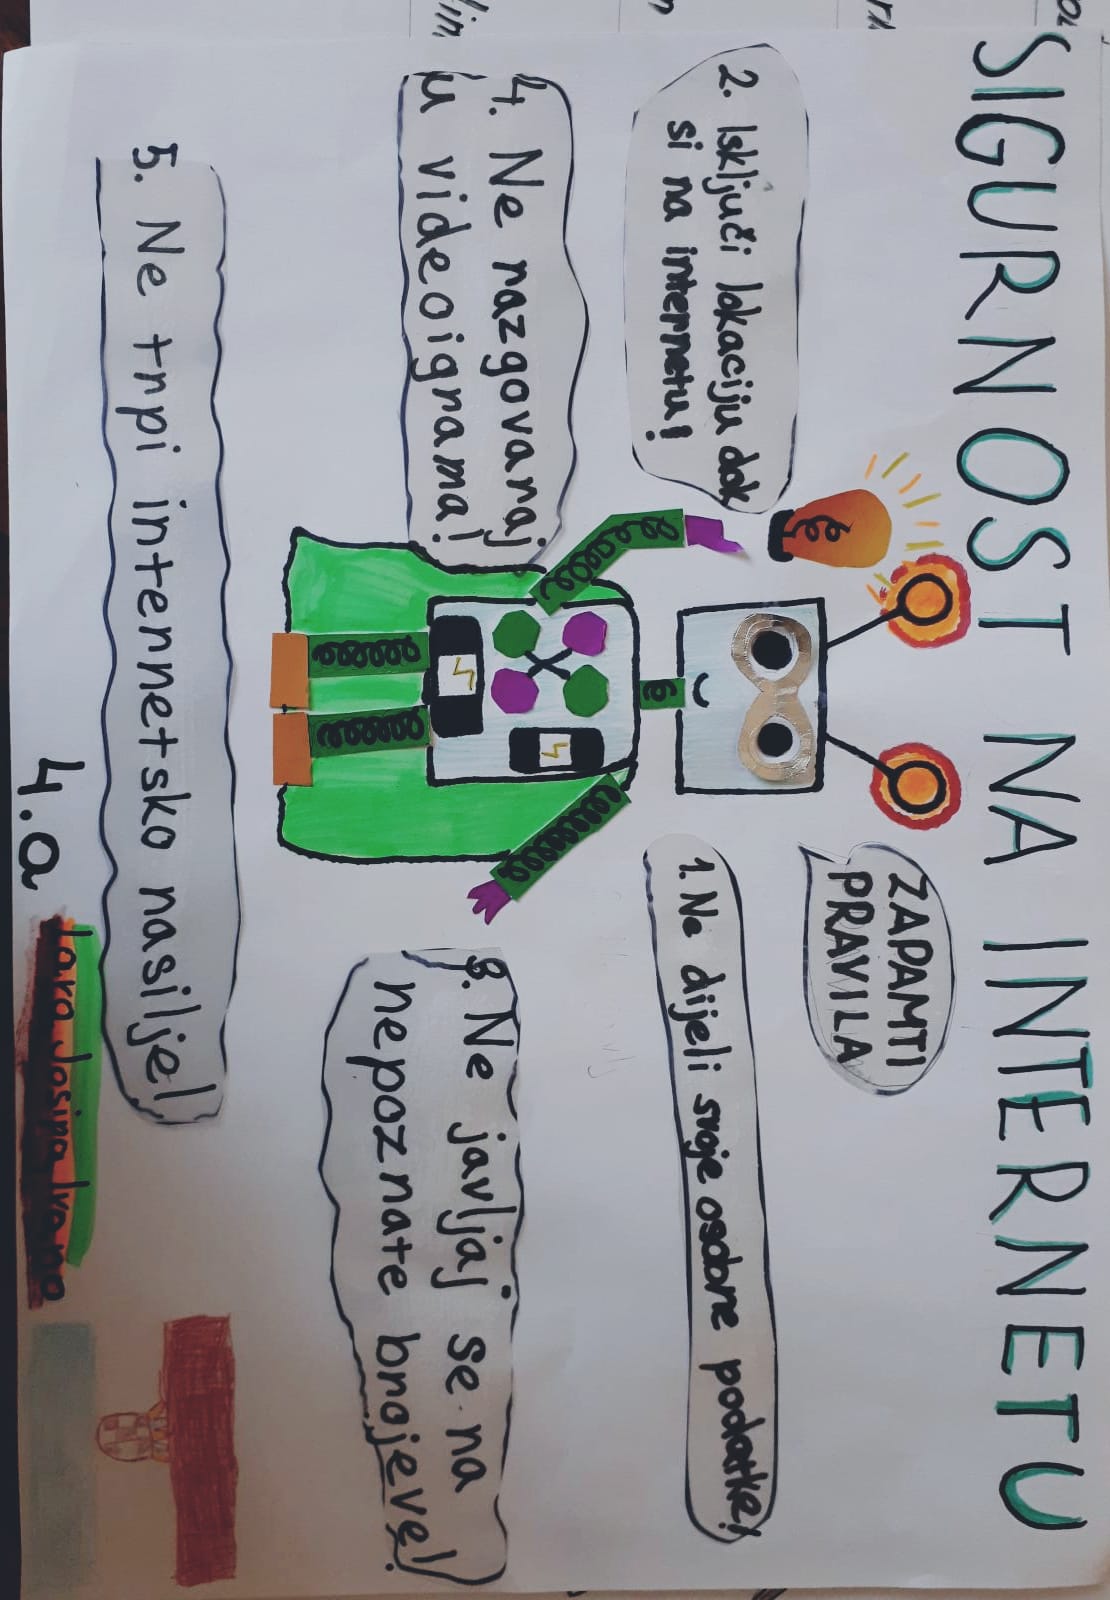 SIGURNOST NA INTERNETU
ZAPAMTI
PRAVILA
1. Ne dijeli svoje osobne podatke!
2. Isključi lokaciju dok
si na internetu!
3. Ne javljaj se na
nepoznate brojeve!
4. Ne razgovaraj
u videoigrama!
5. Ne trpi internetsko nasilje!
4.a